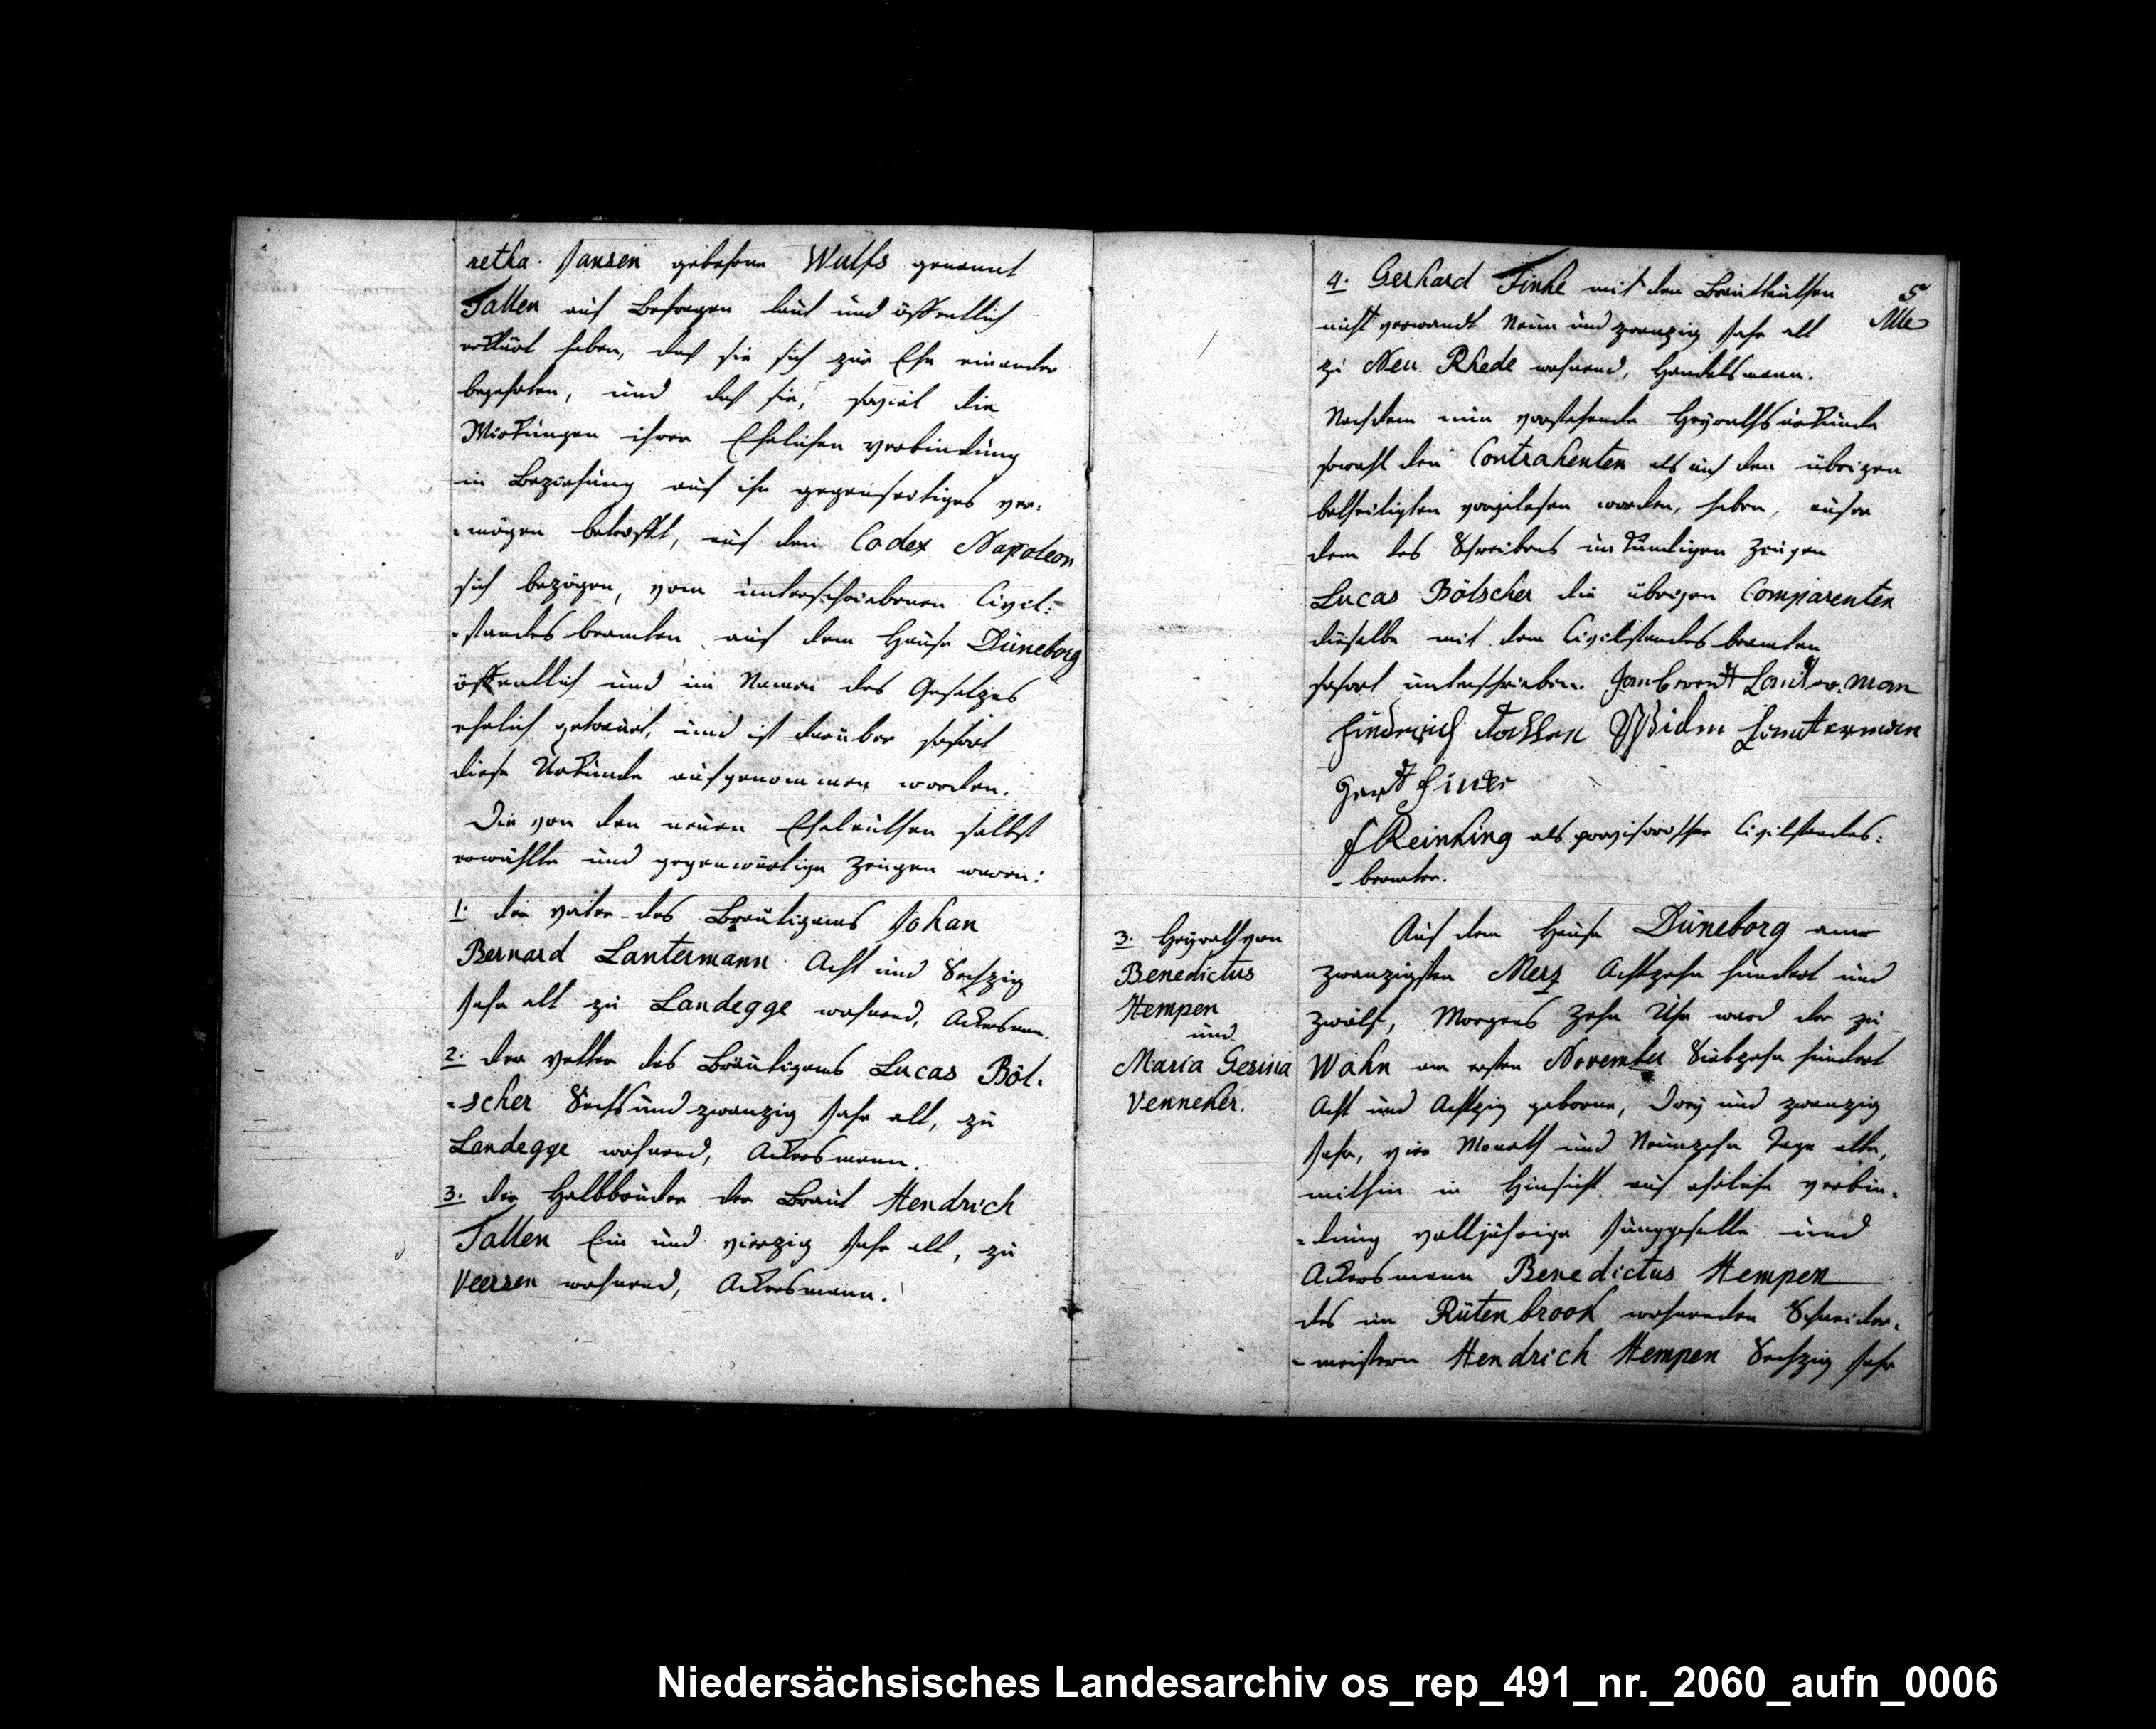 retha Jansen gebohrne Wulfs genannt
Tallen auf Befragen laut und öffentlich
erklärt haben, daß sie sich zur Ehe einander
begehrten, und daß sie, soviel die
Wirkungen ihrer Ehelichen verbindung
in Beziehung auf ihr gegenseitiges ver-
-mögen betrefft, auf den Codex Napoleon
sich bezögen, vom unterschriebenen Civil-
-standes beamten auf dem Hause Düneborg
öffentlich und im Namen des Gesetzes
ehelich getrauet, und ist darüber sofort
diese Urkunde aufgenommen worden.
Die von den neuen Eheleuthen selbst
erwählte und gegenwärtige Zeugen waren:
1. der vater des Bräutigams Johan
Bernard Lantermann Acht und Sechzig
Jahr alt zu Landegge wohnend, Ackersmann.
2. der vetter des Bräutigams Lucas Böl-
-scher Sechs und zwanzig Jahr alt, zu
Landegge wohnend, Ackersmann.
3. der Halbbruder der Braut Hendrich
Tallen Ein und vierzig Jahr alt, zu
Veersen wohnend, Ackersmann.
5
4. Gerhard Finke mit den Brautleuthen
nicht verwandt Neun und zwanzig Jahr alt
zu Neu Rhede wohnend, Handelsmann.
Nachdem nun vorstehende Heyraths urkunde
sowohl den Contrahenten als auch den übrigen
betheiligten vorgelesen worden, haben, außer
dem des Schreibens unkundigen Zeugen
Lucas Bölscher die übrigen Comparenten
dieselbe mit dem Civilstandes beamten
sofort unterschrieben. Lanterman
Lanterman
Reinking als provisorischer Civilstandes-
- beamter.
3. Heyrath von
Benedictus
Hempen
und
Maria Gesina
Venneker.
Auf dem Hause Düneborg am
zwanzigsten Merz Achtzehn hundert und
zwölf, Morgens Zehn Uhr ward der zu
Wahn am ersten November Siebzehn hundert
Acht und Achtzig geborne, Drey und zwanzig
Jahr, vier Monath und Neunzehn Tage alte,
mithin in Hinsicht auf eheliche verbin-
-dung volljährige Junggeselle und
Ackersmann Benedictus Hempen
des im Rütenbrook wohnenden Schneider-
-meistern Hendrich Hempen Sechzig Jahr
Niedersächsisches Landesarchiv os_rep_491_nr._2060_aufn_0006